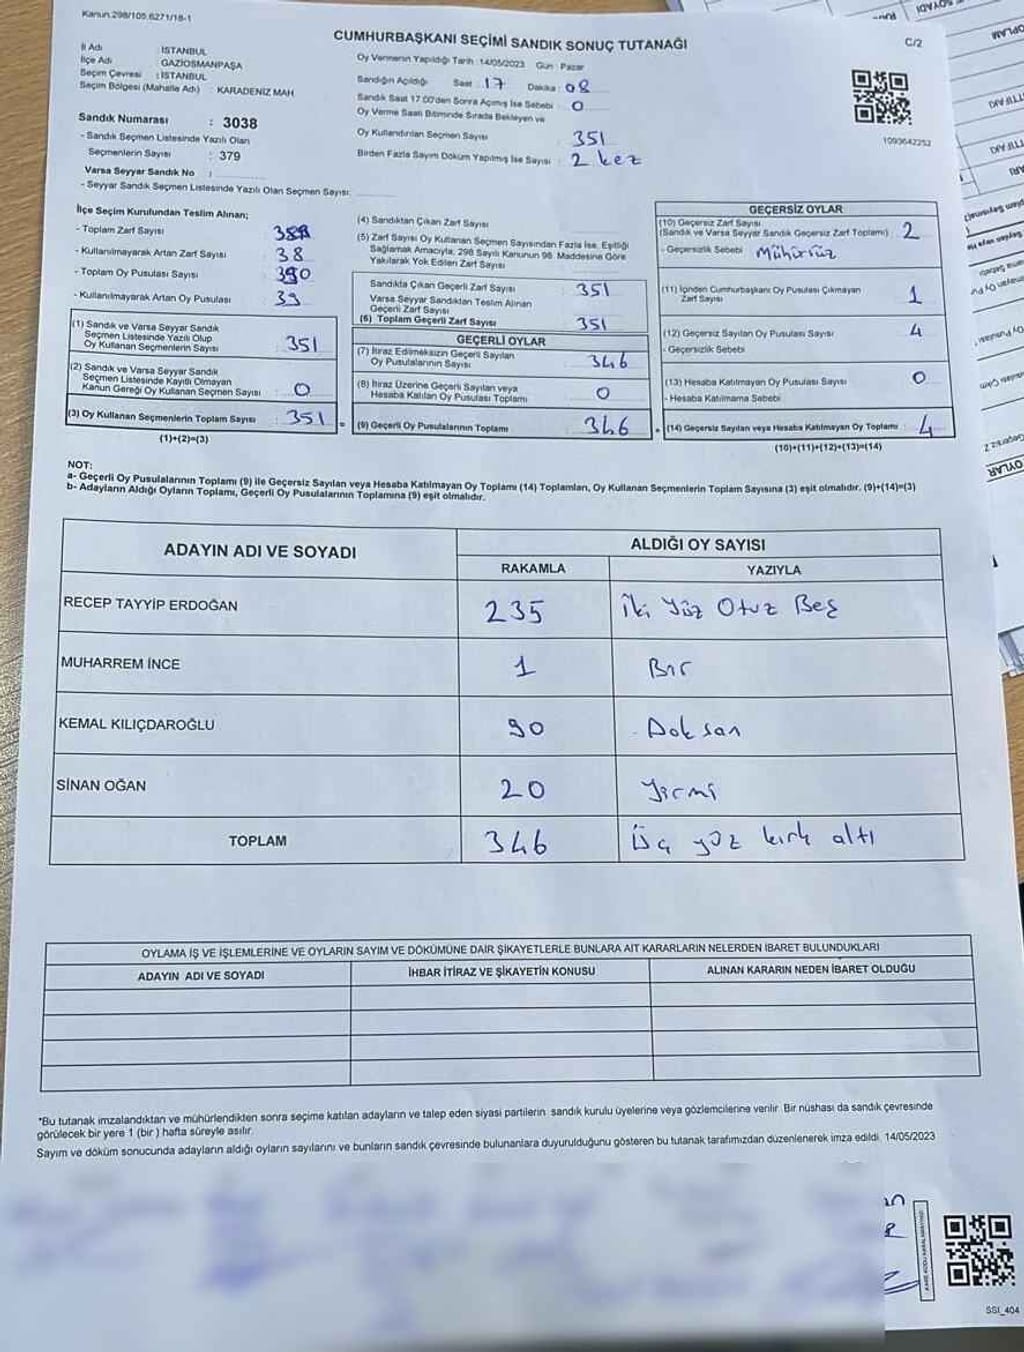 Kanun.298/105,6271/18-1
CUMHURBAŞKANI SEÇİMİ SANDIK SONUÇ TUTANAĞI
C/2
İl Adı : İSTANBUL
İlçe Adı : GAZİOSMANPAŞA
Seçim Çevresi : İSTANBUL
Seçim Bölgesi (Mahalle Adı) : KARADENİZ MAH
Sandık Numarası : 3038
- Sandık Seçmen Listesinde Yazılı Olan
Seçmenlerin Sayısı : 379
Varsa Seyyar Sandık No :
- Seyyar Sandık Seçmen Listesinde Yazılı Olan Seçmen Sayısı:
Oy Vermenin Yapıldığı Tarih :14/05/2023 Gün : Pazar
Sandığın Açıldığı Saat : 17 Dakika : 08
Sandık Saat 17.00'den Sonra Açılmış İse Sebebi : 0
Oy Verme Saati Bitiminde Sırada Bekleyen ve
Oy Kullandırılan Seçmen Sayısı 351
Birden Fazla Sayım Döküm Yapılmış İse Sayısı : 2 kez
1093642252
İlçe Seçim Kurulundan Teslim Alınan;
- Toplam Zarf Sayısı
- Kullanılmayarak Artan Zarf Sayısı : 38
- Toplam Oy Pusulası Sayısı : 390
- Kullanılmayarak Artan Oy Pusulası : 39
(1) Sandık ve Varsa Seyyar Sandık
Seçmen Listesinde Yazılı Olup
Oy Kullanan Seçmenlerin Sayısı : 351
(2) Sandık ve Varsa Seyyar Sandık
Seçmen Listesinde Kayıtlı Olmayan
Kanun Gereği Oy Kullanan Seçmen Sayısı : 0
(3) Oy Kullanan Seçmenlerin Toplam Sayısı : 351
(1)+(2)=(3)
(4) Sandıktan Çıkan Zarf Sayısı
(5) Zarf Sayısı Oy Kullanan Seçmen Sayısından Fazla İse, Eşitliği
Sağlamak Amacıyla, 298 Sayılı Kanunun 98. Maddesine Göre
Yakılarak Yok Edilen Zarf Sayısı
Sandıkta Çıkan Geçerli Zarf Sayısı : 351
Varsa Seyyar Sandıktan Teslim Alınan
Geçerli Zarf Sayısı
(6) Toplam Geçerli Zarf Sayısı : 351
GEÇERLİ OYLAR
(7) İtiraz Edilmeksizin Geçerli Sayılan
Oy Pusulalarının Sayısı : 346
(8) İtiraz Üzerine Geçerli Sayılan veya
Hesaba Katılan Oy Pusulası Toplamı : 0
= (9) Geçerli Oy Pusulalarının Toplamı : 346
GEÇERSİZ OYLAR
(10) Geçersiz Zarf Sayısı
(Sandık ve Varsa Seyyar Sandık Geçersiz Zarf Toplamı) : 2
- Geçersizlik Sebebi : Mühürsüz
(11) İçinden Cumhurbaşkanı Oy Pusulası Çıkmayan
Zarf Sayısı : 1
(12) Geçersiz Sayılan Oy Pusulası Sayısı : 4
- Geçersizlik Sebebi
(13) Hesaba Katılmayan Oy Pusulası Sayısı : 0
- Hesaba Katılmama Sebebi
+ (14) Geçersiz Sayılan veya Hesaba Katılmayan Oy Toplamı : 4
(10)+(11)+(12)+(13)=(14)
NOT:
a- Geçerli Oy Pusulalarının Toplamı (9) ile Geçersiz Sayılan veya Hesaba Katılmayan Oy Toplamı (14) Toplamları, Oy Kullanan Seçmenlerin Toplam Sayısına (3) eşit olmalıdır. (9)+(14)=(3)
b- Adayların Aldığı Oyların Toplamı, Geçerli Oy Pusulalarının Toplamına (9) eşit olmalıdır.
ADAYIN ADI VE SOYADI ALDIĞI OY SAYISI
RAKAMLA YAZIYLA
RECEP TAYYİP ERDOĞAN 235 İki Yüz Otuz Beş
MUHARREM İNCE 1 Bir
KEMAL KILIÇDAROĞLU 90 Doksan
SİNAN OĞAN 20 Yirmi
TOPLAM 346 Üç yüz kırk altı
OYLAMA İŞ VE İŞLEMLERİNE VE OYLARIN SAYIM VE DÖKÜMÜNE DAİR ŞİKAYETLERLE BUNLARA AİT KARARLARIN NELERDEN İBARET BULUNDUKLARI
ADAYIN ADI VE SOYADI İHBAR İTİRAZ VE ŞİKAYETİN KONUSU ALINAN KARARIN NEDEN İBARET OLDUĞU
*Bu tutanak imzalandıktan ve mühürlendikten sonra seçime katılan adayların ve talep eden siyasi partilerin sandık kurulu üyelerine veya gözlemcilerine verilir. Bir nüshası da sandık çevresinde
görülecek bir yere 1 (bir) hafta süreyle asılır.
Sayım ve döküm sonucunda adayların aldığı oyların sayılarını ve bunların sandık çevresinde bulunanlara duyurulduğunu gösteren bu tutanak tarafımızdan düzenlenerek imza edildi. 14/05/2023
SSI_404